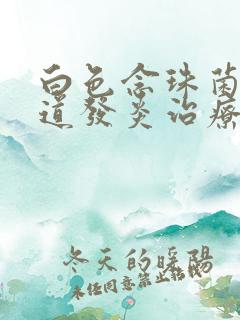 白色念珠菌
道發炎治療
冬天的暖陽
未经同意禁止转载